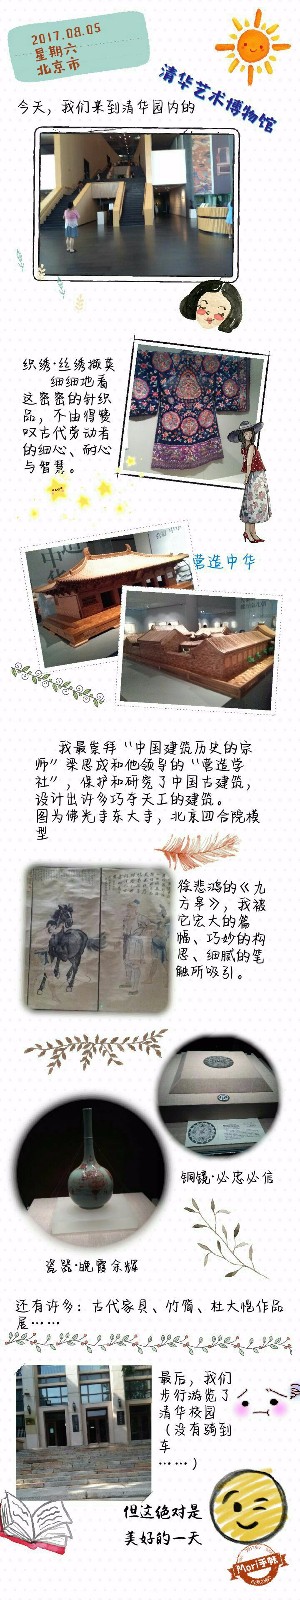 2017.08.05
星期六
北京市
清华艺术博物馆
今天，我们来到清华园内的
织绣·丝绣撷英
细细地看
这密密的针织
品，不由得赞
叹古代劳动者
的细心、耐心
与智慧。
营造中华
我最崇拜“中国建筑历史的宗
师”梁思成和他领导的“营造学
社”，保护和研究了中国古建筑，
设计出许多巧夺天工的建筑。
图为佛光寺东大寺，北京四合院模
型
徐悲鸿的《九
方皋》，我被
它宏大的篇
幅、巧妙的构
思、细腻的笔
触所吸引。
铜镜·必忠必信
瓷器·晚霞余辉
还有许多：古代家具、竹简、杜大恺作品
展……
最后，我们
步行游览了
清华校园
（没有骑到
车
……）
但这绝对是
美好的一天
Mori手帐